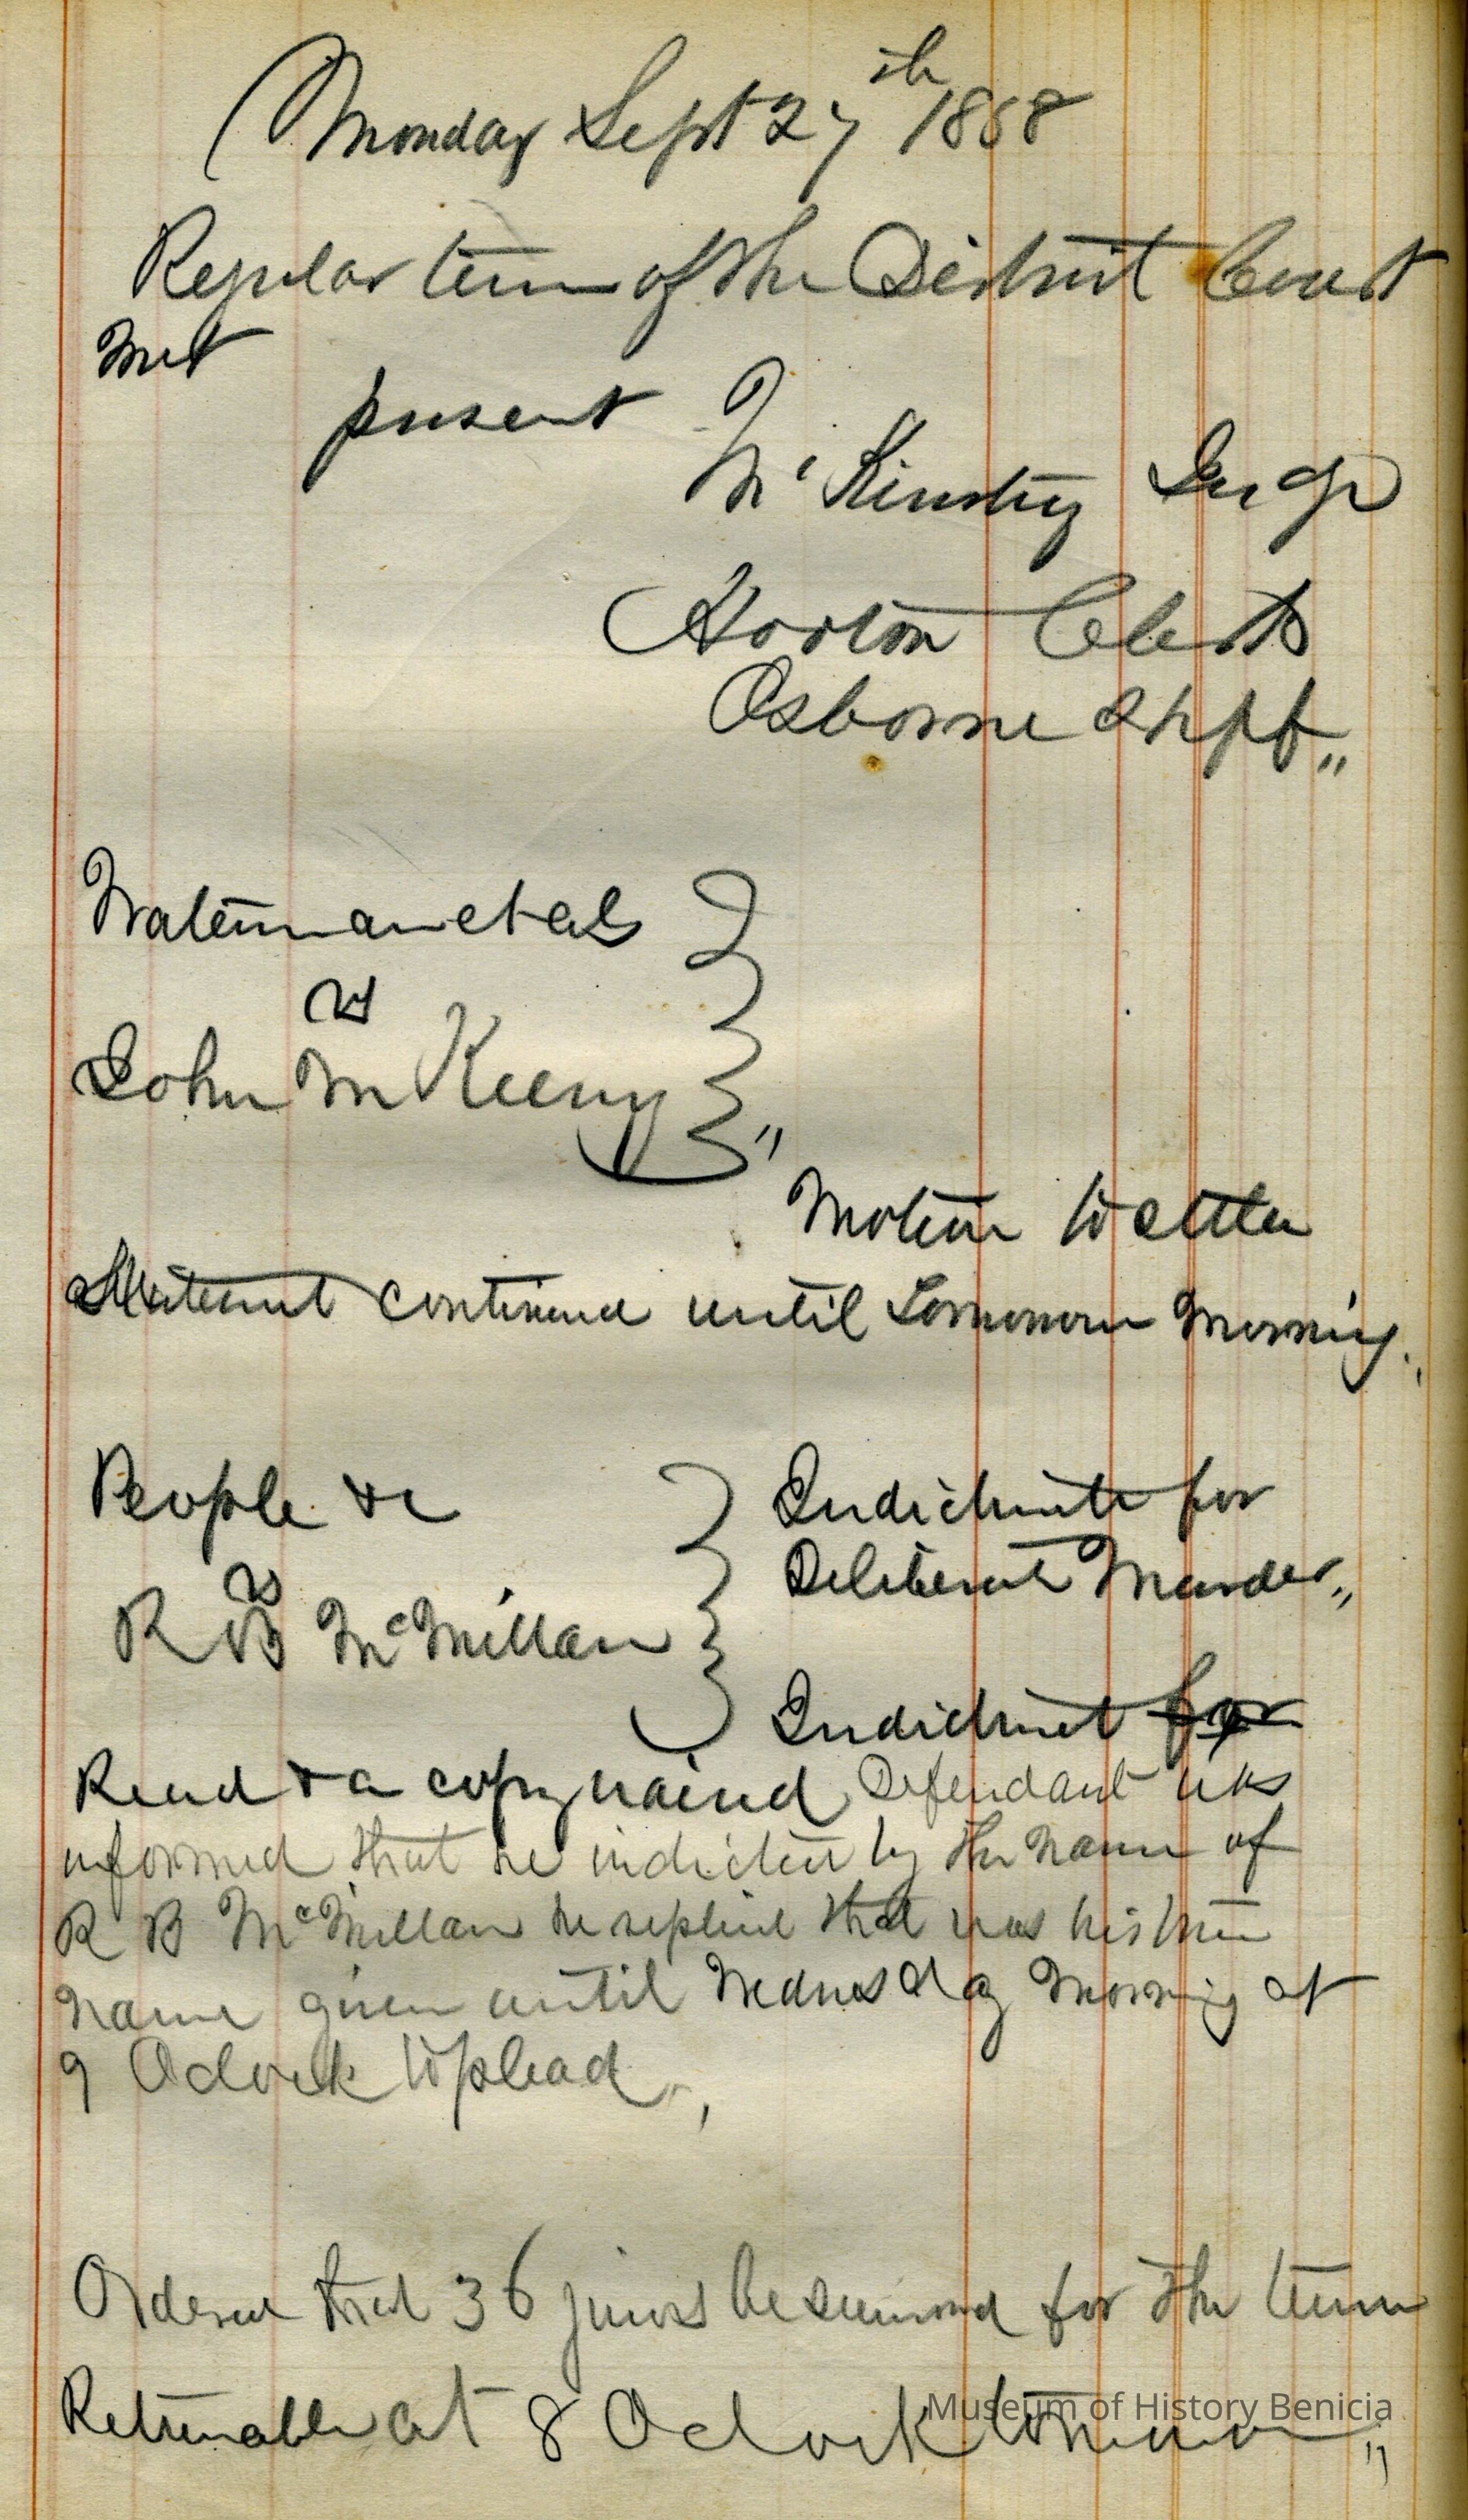 Monday Sept 27th 1858
Regular term of the District Court
Met
present
McKinstry Judge
Horton Clerk
Osborne Shff
Waterman et als
vs
John McKeeny
Motion to
continued until Tomorrow Morning.
People &c
vs
R B McMillan
Indictment for
Deliberate Murder
Indictment for
Read & a copy waived Defendant was
informed that he indicted by the name of
R B McMillan he replied that was his true
name given until Wednesday Morning at
9 Oclock to plead
Ordered that 36 jurors be summoned for the term
Returnable at 8 Oclock tomorrow
Museum of History Benicia